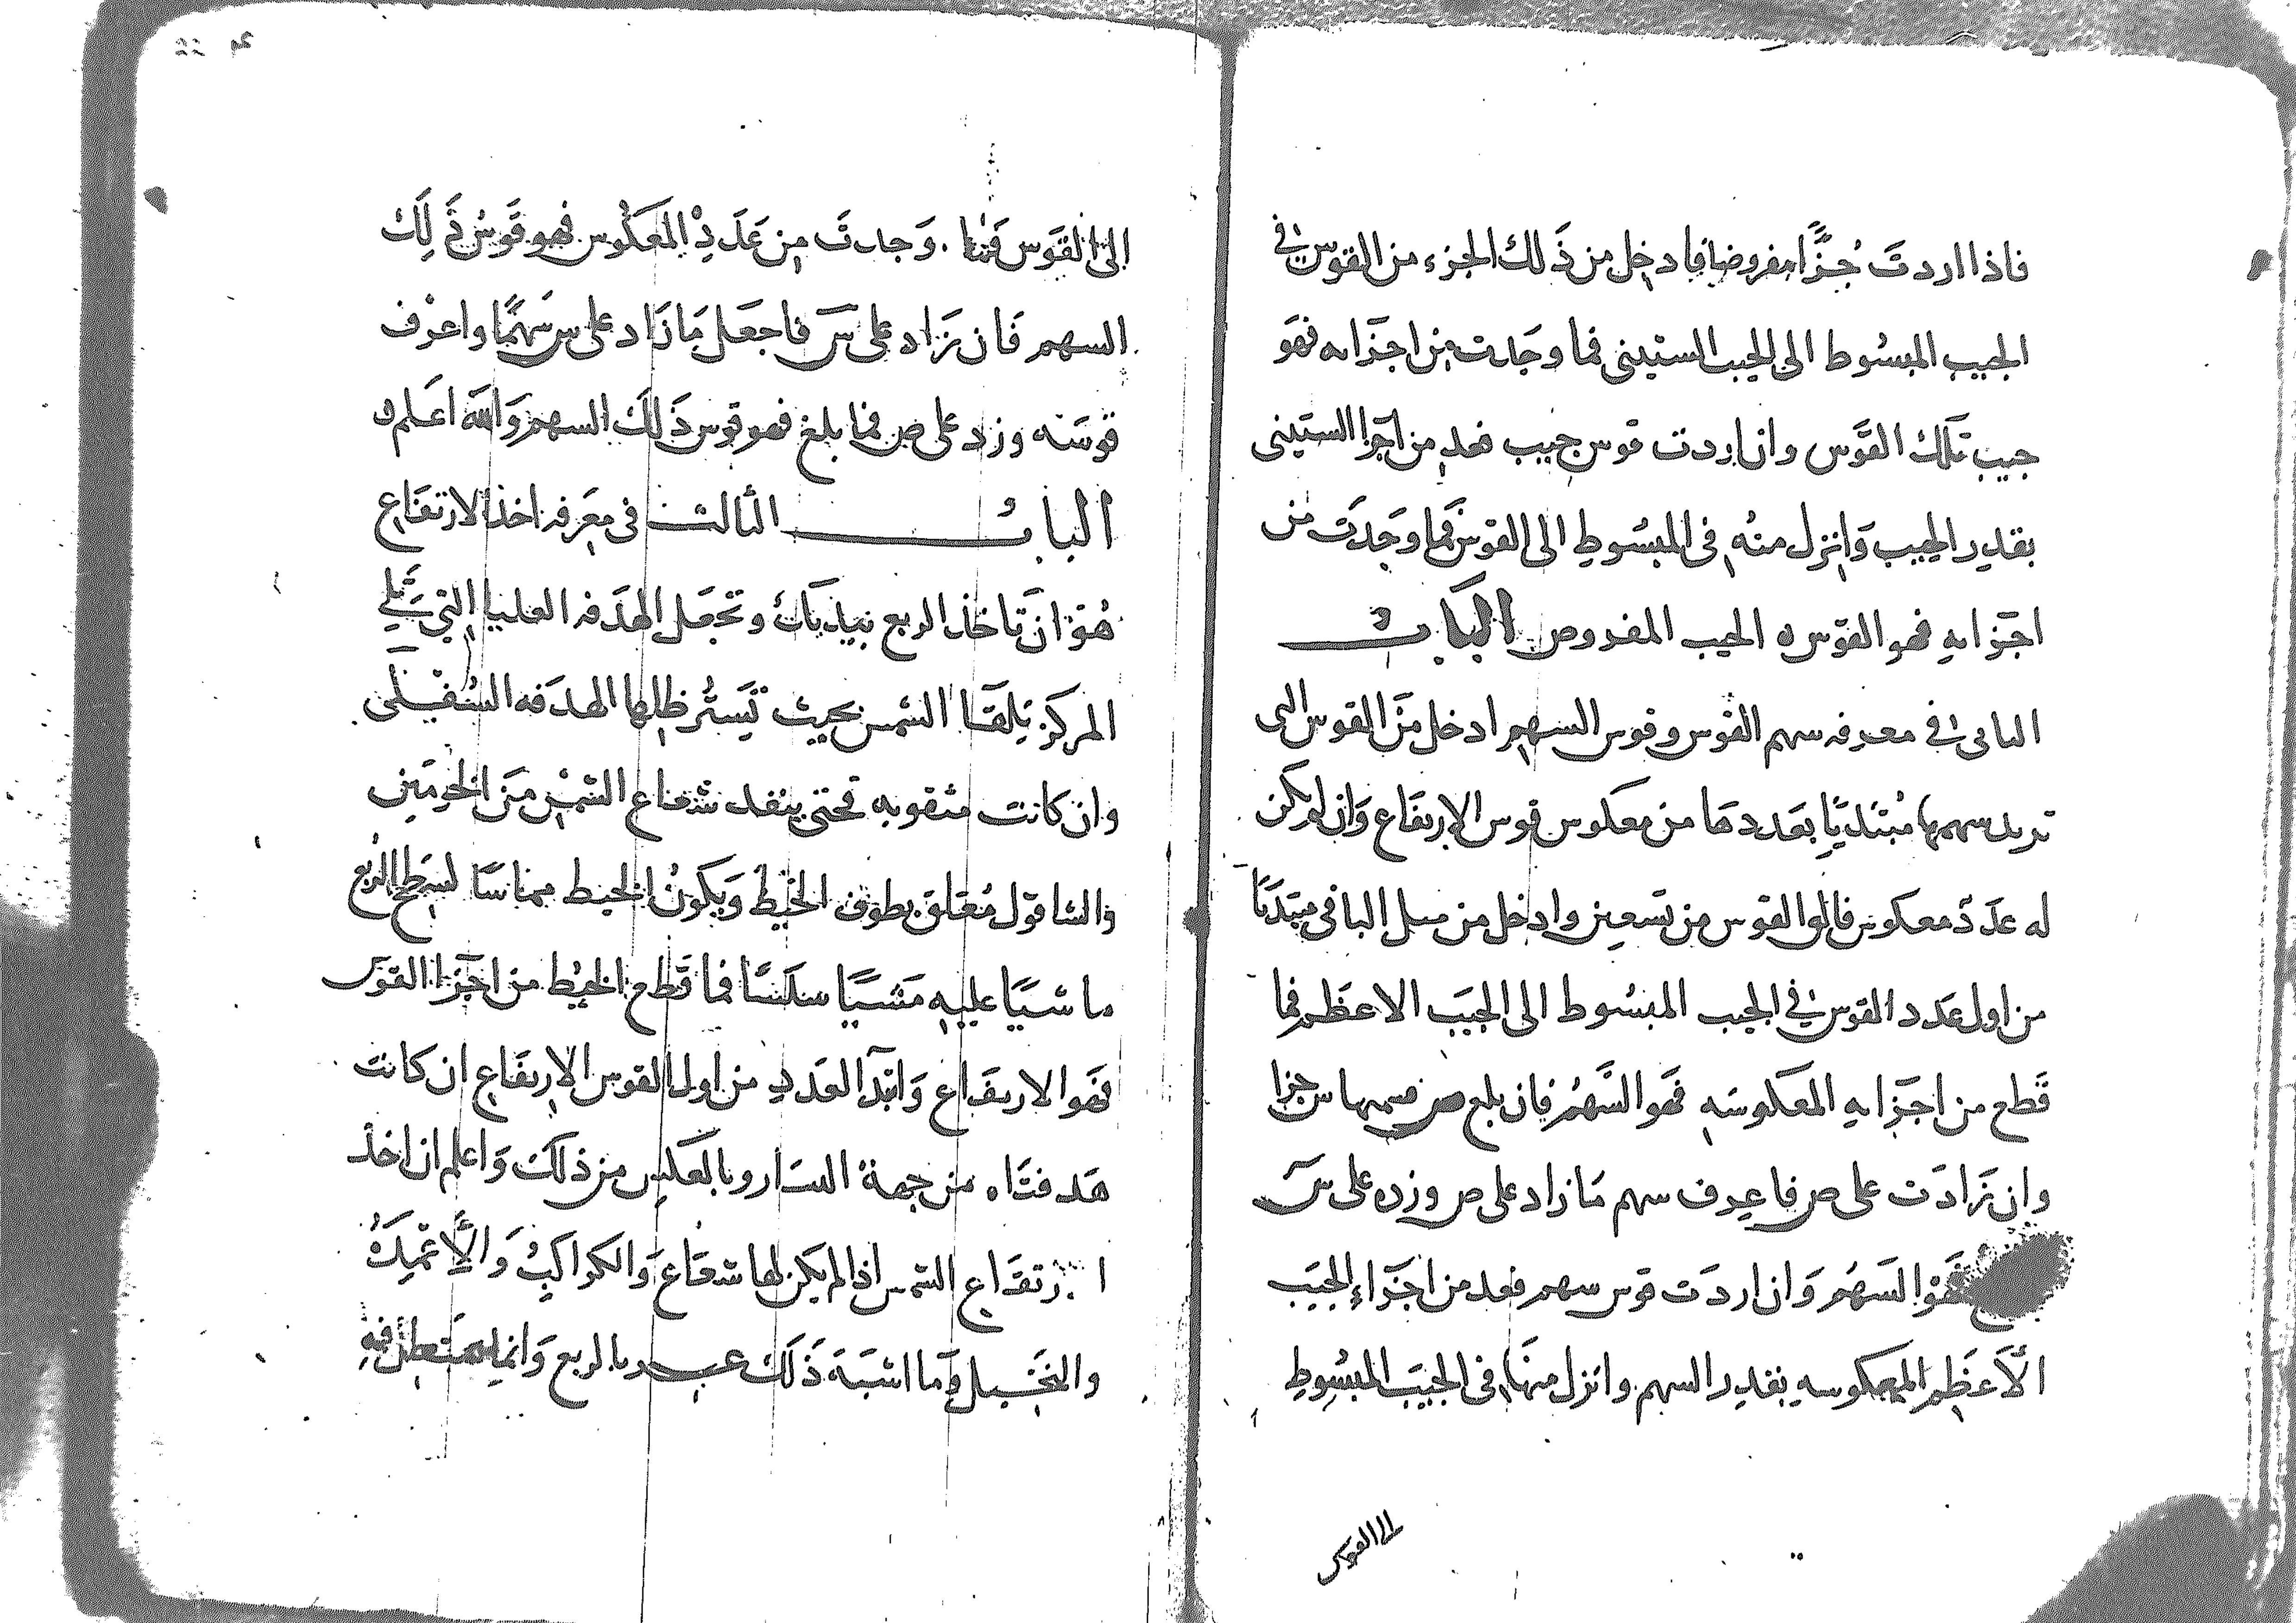 فاذا اردتَ جُزًّا مفروضا فادخل من ذَلك الجزء من القوس في
الجيب المبسُوط الى الجيب الستينى فما وجَدت من اجزَاىه فهَو
جيب تلك القَوس وان اردت قوس جيب فعد من اجزا الستينى
بقدر الجيب وَانزل منهُ فى المبسُوط الى القوس فما وجَدَت من
اجزَاىه فهو القوس ه الجيب المفروض البابُ
الثانى في معرفه سهم القوس وقوس السهم ادخل مَن القوس التى
تريد سهمها مُبتديًا بعَددهَا من معكوس قوس الارتفاع وَان لم يكن
له عدَدٌ معكوس فالق القوس من تسعين وادخل من مثل الباقى مبتديًا
من اول عَدد القوس في الجيب المبسُوط الى الجيَب الاعظَم فما
قَطع من اجزَاىه المعَكوسَه فهَو السَّهمُ فان بلغ ص فسهمها س جزا
وان زَادَت على ص فاعرف سهم مَا زاد على ص وزده على سَ
فهَوْ السَهُم وَان اردَت قوس سهم فعد من اجزَاءِ الجيَب
الاَعظَم المعكوسه بقدر السهم وانزل منهَا فى الجيَب المبسُوطِ
الى القوس
الى القَوس فما وَجدتَ من عَدَدِ المعَكوُس فهو قَوسُ ذَلِكَ
السهم فَان زَاد على سَ فاجعَل مَا زَاد على س سَهمًا واعرْف
قوسَه وزد على ص فما بلغ فهو قوس ذَلكَ السهم وَالله اعَلم ه
البابُ الثالث فى معَرفه اخذ الارتفَاع
هُوَ ان تَاخذ الربع بيديَك وتجَعل الهدَفه العليا التي تَلي
المركز تِلقَا الشمس بحيث تَستُر ظلها الهدَفه السُفلَى
وان كانت مثقوبه فحتى ينفد شعاع الشمس مَن الخرمَين
والشاقول مُعَلق بطرف الخَيط وَيكونُ الخيط مماسًا لسَطح الربُع
ماشيًا عليه مَشيًا سلسًا فما قَطع الخيُط من اجزَا القوَس
فهَو الارتفَاع وَابتدَا العَدد من اول القوس الارتفَاع ان كانت
هَدفتَاه من جهة اليسَار وبالعَكس من ذلكَ وَاعلم ان اخذ
ارتفَاع الشمس اذا لم يكَن لها شعَاع وَالكواكبِ وَالاَعمِدَهُ
والنخَيل وَما اشبَهَ ذَلكَ عسر بالربع وَانما يستعمل فيهِ